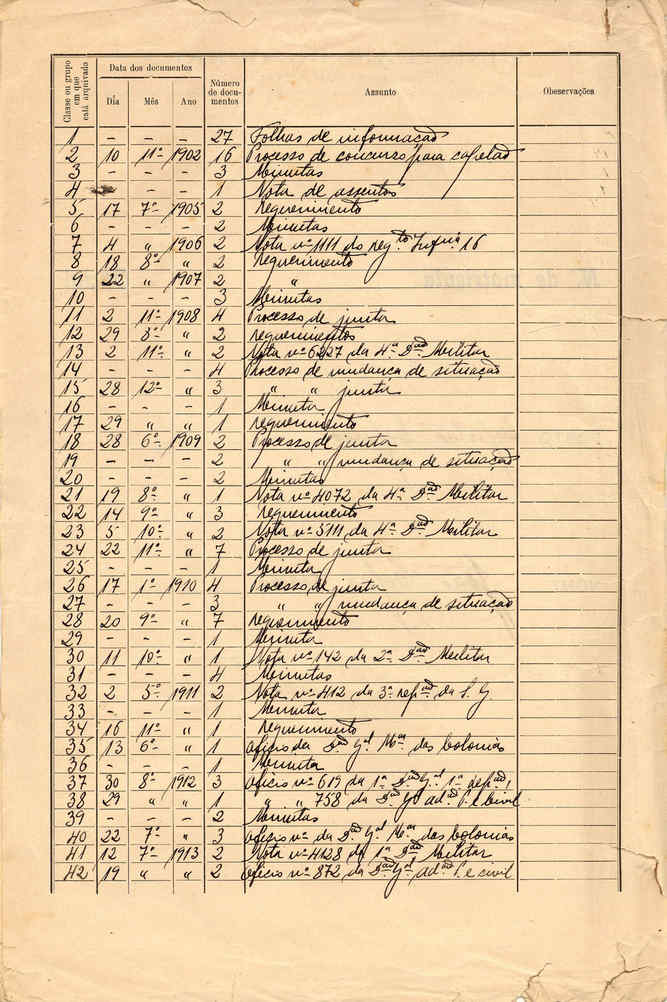 Classe ou grupo em que está arquivado
Data dos documentos
Dia Mês Ano
Número de docu-
mentos
Assunto
Obeservações
1 - - - 27 Folhas de informação
2 10 11º 1902 16 Processo de concurso para capelão
3 - - - 3 Minutas
4 - - - 1 Nota de assentos
5 17 7º 1905 2 requerimento
6 - - - 2 Minutas
7 4 " 1906 2 Nota nº 1111 do regto Infria 16
8 18 8º " 2 requerimento
9 22 " 1907 2 "
10 - - - 3 Minutas
11 2 11º 1908 4 Processo de junta
12 29 8º " 2 requerimentos
13 2 11º " 2 Nota nº 6427 da 4ª Dão Militar
14 - - - 4 Processo de mudança de situação
15 28 12º " 3 " " junta
16 - - - 1 Minuta
17 29 " " 1 requerimento
18 28 6º 1909 2 Processo de junta
19 - - - 2 " " mudança de situação
20 - - - 2 Minutas
21 19 8º " 1 Nota nº 4072 da 4ª Dão Militar
22 14 9º " 3 requerimento
23 5 10º " 2 Nota nº 5111 da 4ª Dão Militar
24 22 11º " 7 Processo de junta
25 - - - 1 Minuta
26 17 1º 1910 4 Processo de junta
27 - - - 3 " " mudança de situação
28 20 9º " 7 requerimento
29 - - - 1 Minuta
30 11 10º " 1 Nota nº 142 da 2ª Dão Militar
31 - - - 4 Minutas
32 2 5º 1911 2 Nota nº 412 da 3ª repão da S. G
33 - - - 1 Minuta
34 16 11º " 1 requerimento
35 13 6º " 1 Oficio da Dão Gal Mar das Colonias
36 - - - 1 Minuta
37 30 8º 1912 3 Oficio nº 619 da 1ª Dão Gal 1ª repão
38 29 " " 1 " " 758 da Dão Gal adão P. e Civil
39 - - - 2 Minutas
40 22 7º " 3 Oficio nº da Dão Gal Mar das Colonias
41 12 7º 1913 2 Nota nº 4128 da 1ª Dão Militar
42 19 " " 2 Oficio nº 872 da Dão Gal adão P. e civil